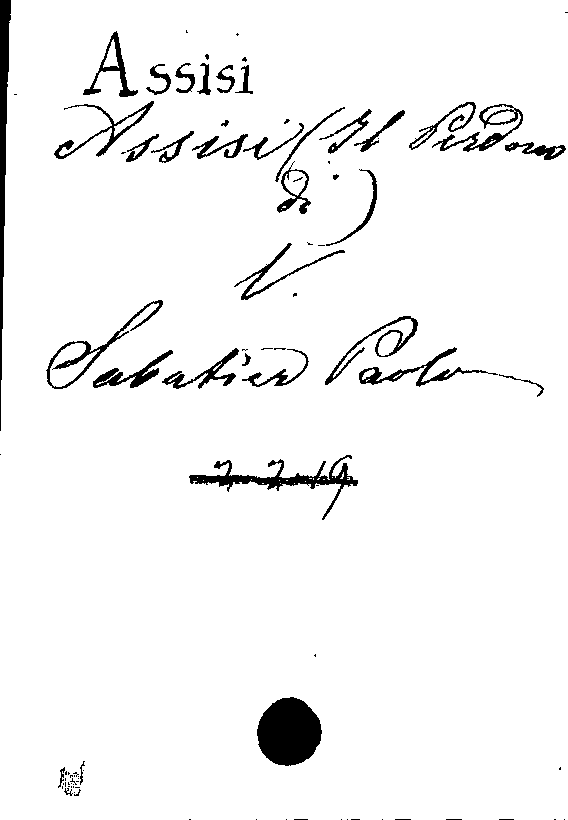 Assisi
Assisi (Il Perdono
di)
V.
Sabatier Paolo